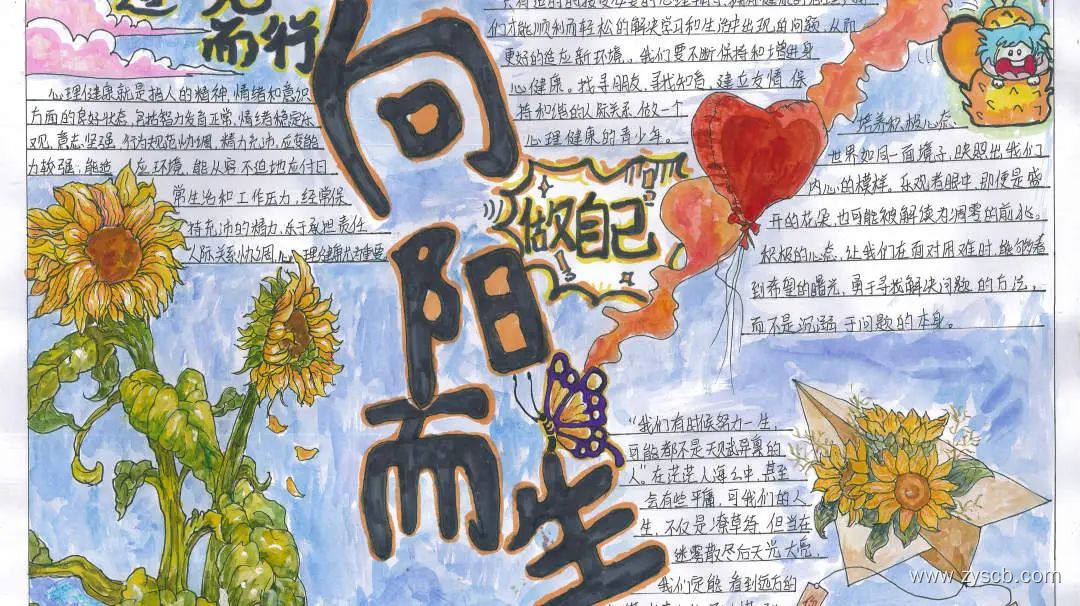 而行
心理健康就是指人的精神、情绪和意识
方面的良好状态,包括智力发育正常,情绪稳定乐
观,意志坚强,行为规范协调,精力充沛,应变能
力较强,能适应环境,能从容不迫地应付日
常生活和工作压力,经常保
持充沛的精力,乐于承担责任
人际关系协调,心理健康状态重要
向阳而生
们才能顺利而轻松的解决学习和生活中出现的问题,从而
更好的适应新环境。我们要不断保持和增进身
心健康。找寻朋友、寻找知音,建立友情,保
持和谐的人际关系,做一个
心理健康的青少年。
做自己
培养积极心态
世界如同一面镜子,映照出我们
内心的模样。乐观者眼中,即便是盛
开的花朵,也可能被解读为凋零的前兆。
积极的心态,让我们在面对困难时,能够看
到希望的曙光,勇于寻找解决问题的方法,
而不是沉溺于问题的本身。
“我们有时候努力一生,
可能都不是天赋异禀的
人”在茫茫人海之中,甚至
会有些平庸,可我们的人
生,不仅是潦草待,但当在
迷雾散尽后天光大亮,
我们定能看到远方的
www.zyscb.com